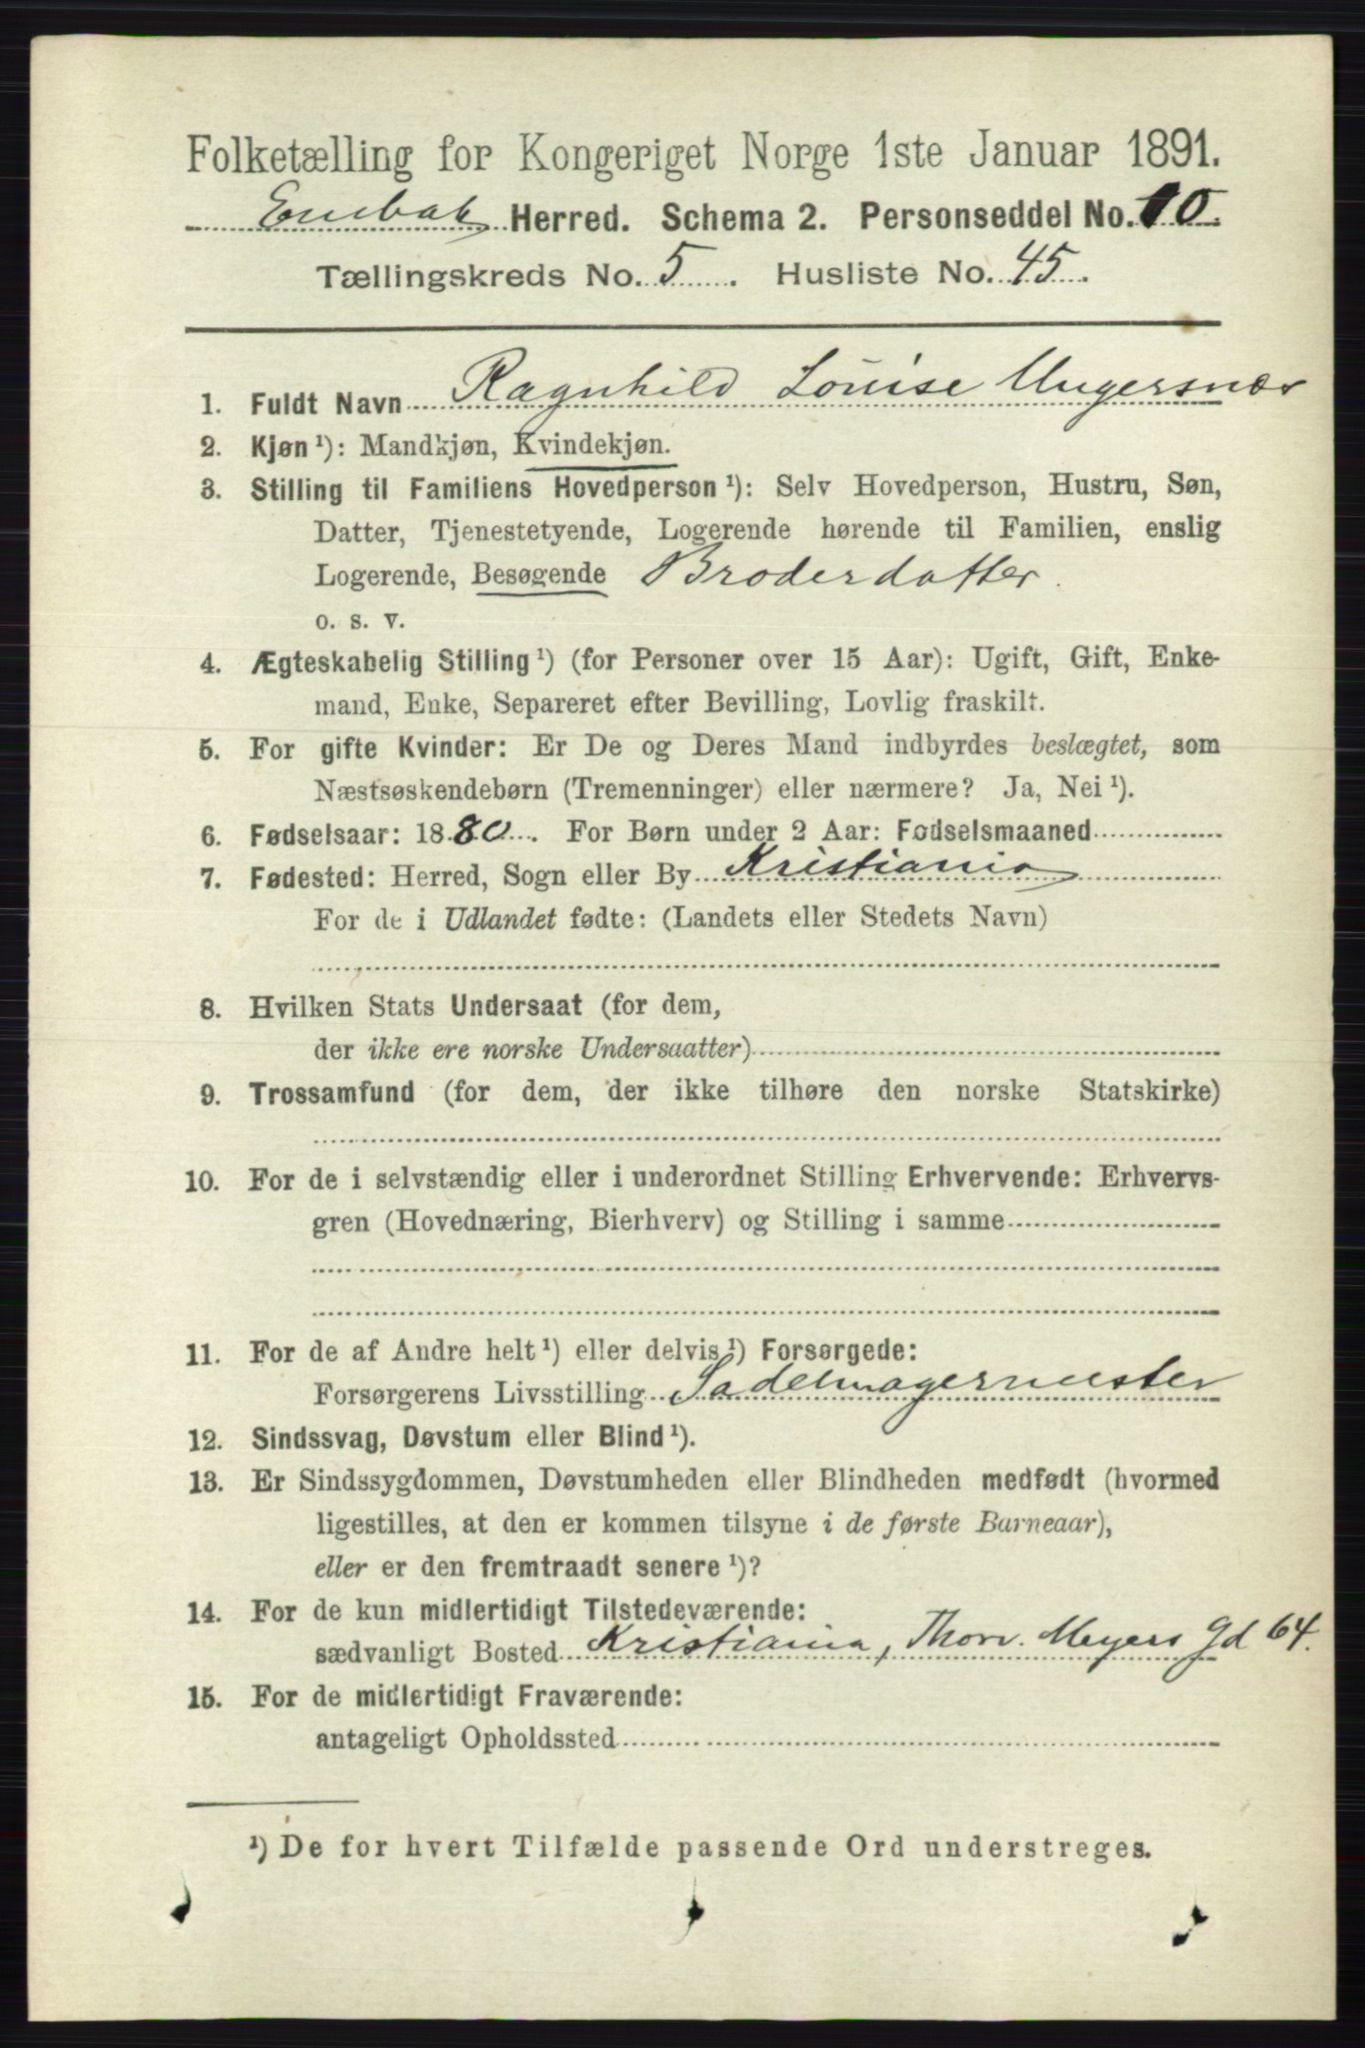 Folketælling for Kongeriget Norge 1ste Januar 1891.
Enebak Herred. Schema 2. Personseddel No. 10.
Tællingskreds No. 5. Husliste No. 45.
1. Fuldt Navn Ragnhild Louise Ungersnæs
2. Kjøn ¹): Mandkjøn, Kvindekjøn.
3. Stilling til Familiens Hovedperson ¹): Selv Hovedperson, Hustru, Søn,
Datter, Tjenestetyende, Logerende hørende til Familien, enslig
Logerende, Besøgende Broderdatter.
o. s. v.
4. Ægteskabelig Stilling ¹) (for Personer over 15 Aar): Ugift, Gift, Enke-
mand, Enke, Separeret efter Bevilling, Lovlig fraskilt.
5. For gifte Kvinder: Er De og Deres Mand indbyrdes beslægtet, som
Næstsøskendebørn (Tremenninger) eller nærmere? Ja, Nei ¹).
6. Fødselsaar: 1880. For Børn under 2 Aar: Fødselsmaaned
7. Fødested: Herred, Sogn eller By Kristiania
For de i Udlandet fødte: (Landets eller Stedets Navn)
8. Hvilken Stats Undersaat (for dem,
der ikke ere norske Undersaatter)
9. Trossamfund (for dem, der ikke tilhøre den norske Statskirke)
10. For de i selvstændig eller i underordnet Stilling Erhvervende: Erhvervs-
gren (Hovednæring, Bierhverv) og Stilling i samme
11. For de af Andre helt ¹) eller delvis ¹) Forsørgede:
Forsørgerens Livsstilling Sadelmagermester
12. Sindssvag, Døvstum eller Blind ¹).
13. Er Sindssygdommen, Døvstumheden eller Blindheden medfødt (hvormed
ligestilles, at den er kommen tilsyne i de første Barneaar),
eller er den fremtraadt senere ¹)?
14. For de kun midlertidigt Tilstedeværende:
sædvanligt Bosted Kristiania, Thorv. Meyers gd 64.
15. For de midlertidigt Fraværende:
antageligt Opholdssted
¹) De for hvert Tilfælde passende Ord understreges.